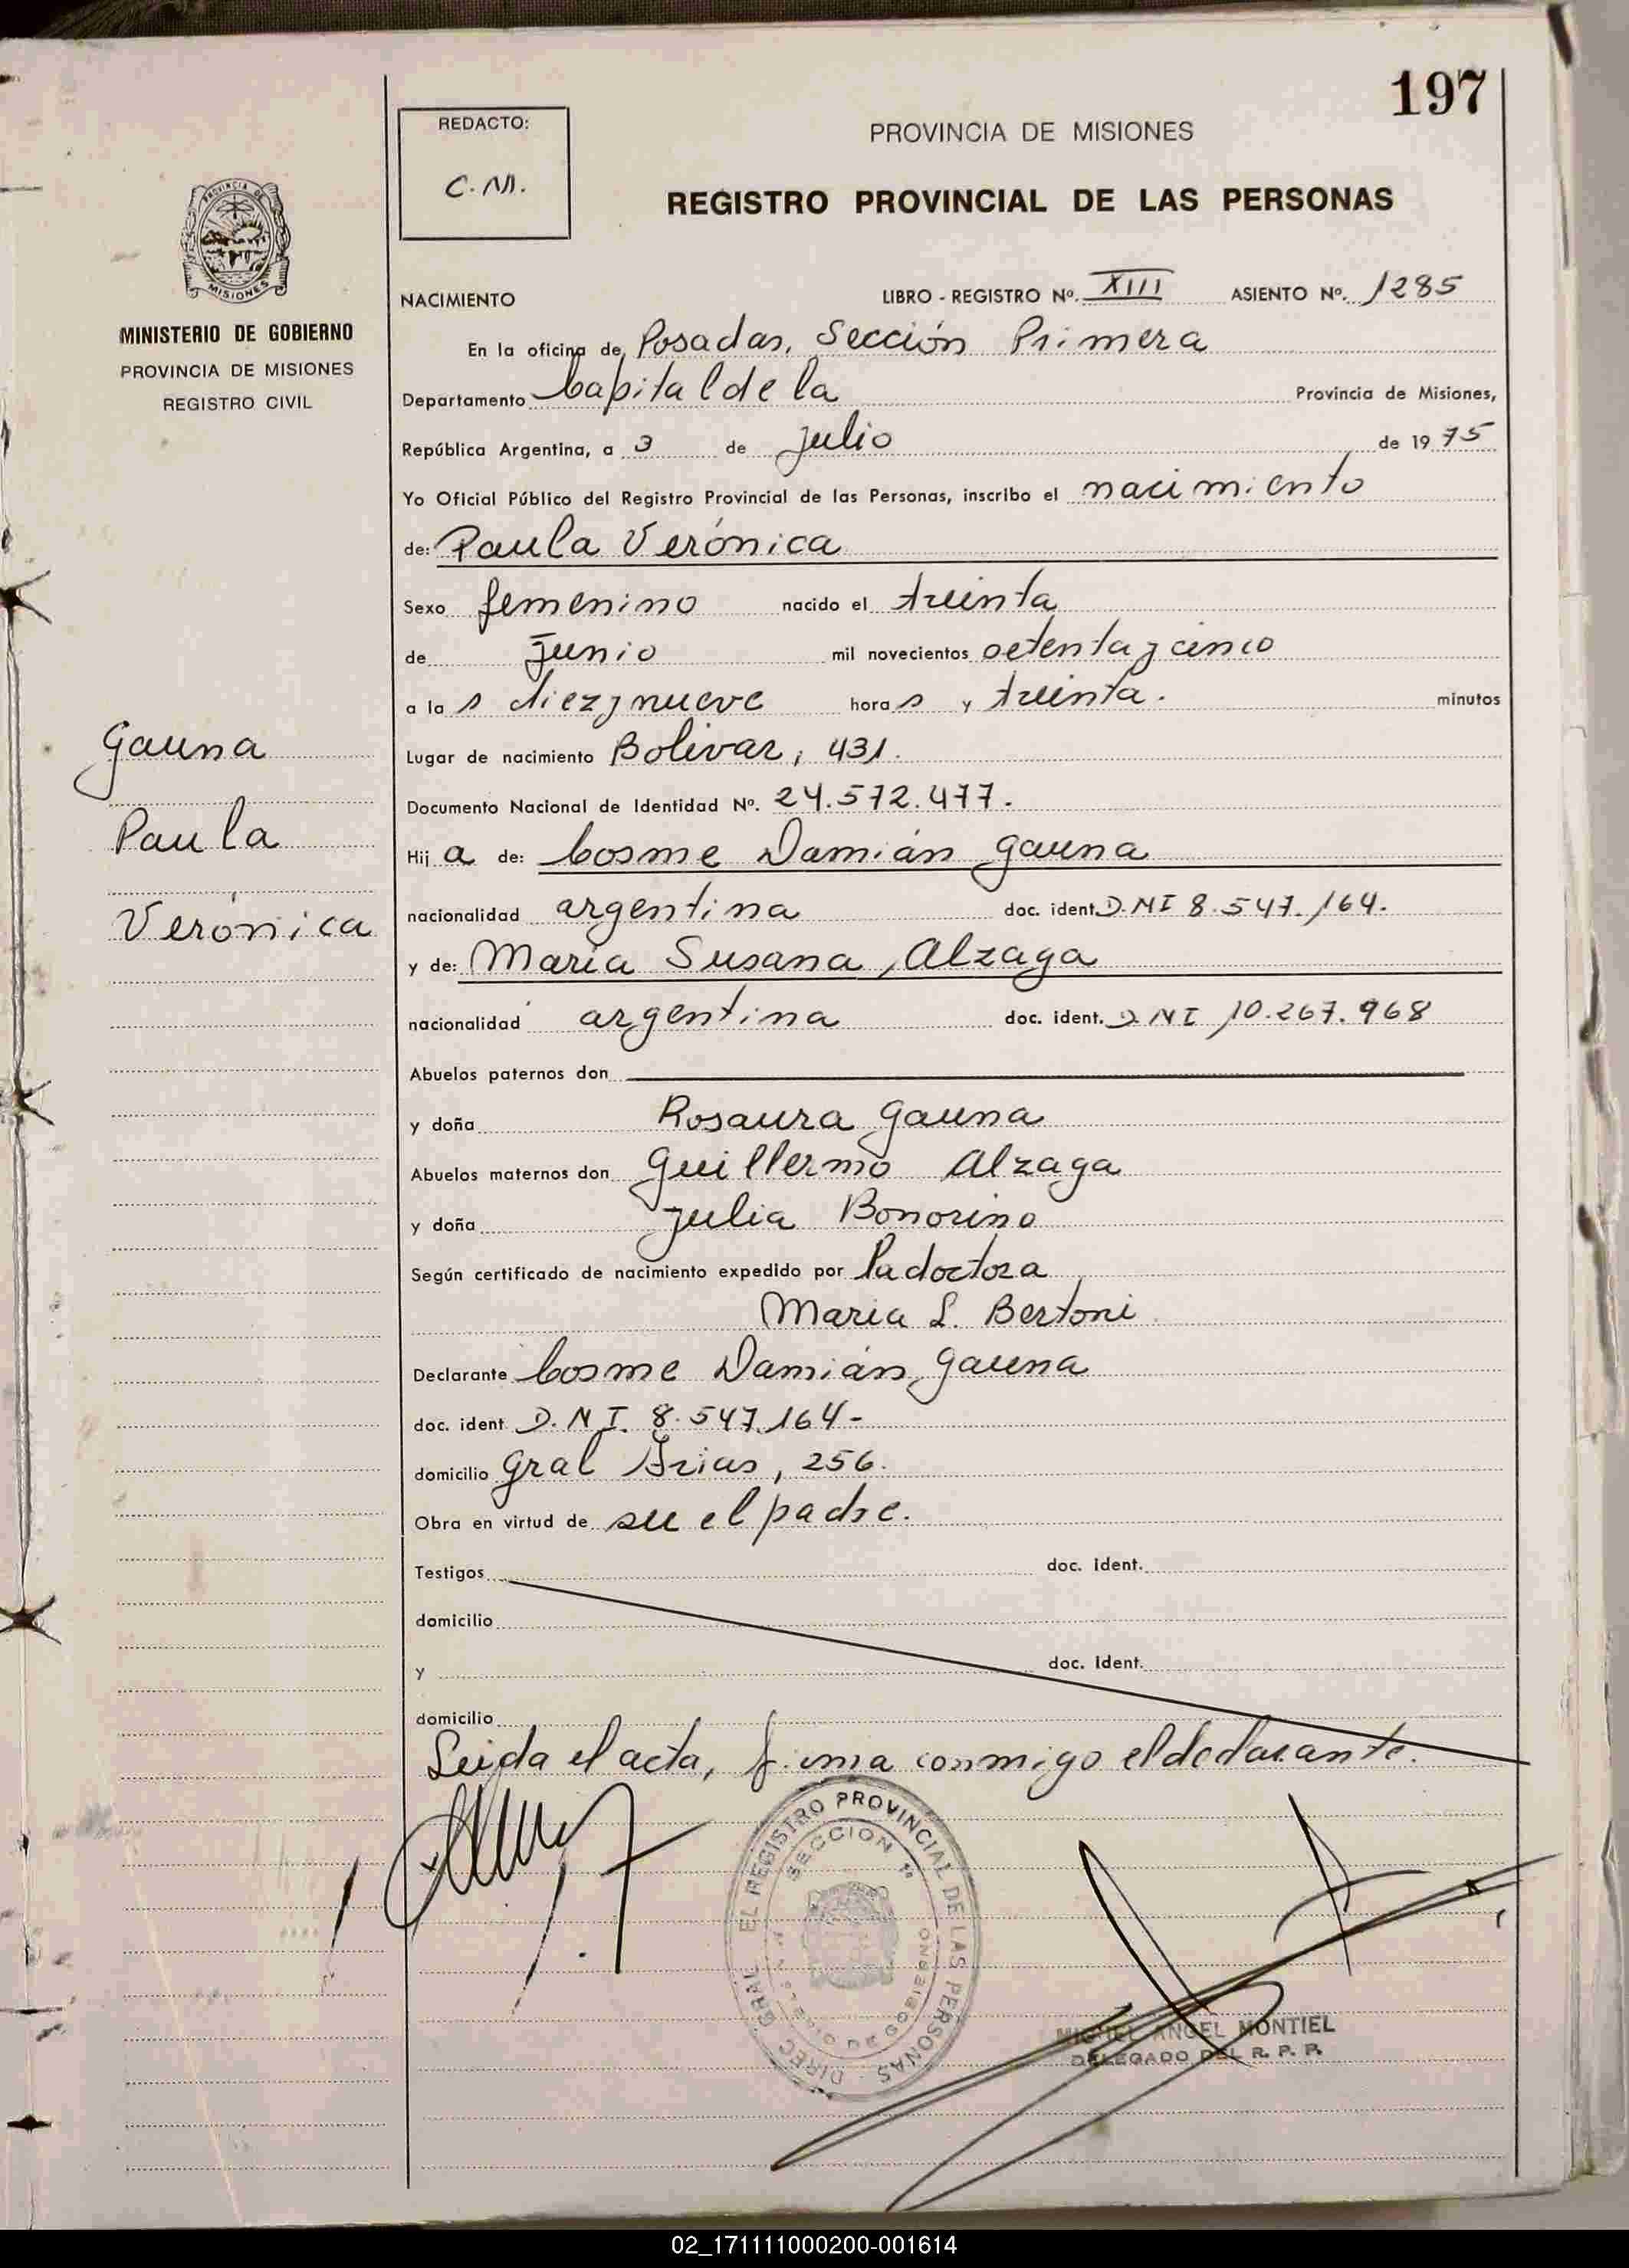 197
REDACTO:
C.M.
PROVINCIA DE MISIONES
REGISTRO PROVINCIAL DE LAS PERSONAS
PROVINCIA DE
MISIONES
MINISTERIO DE GOBIERNO
PROVINCIA DE MISIONES
REGISTRO CIVIL
NACIMIENTO LIBRO - REGISTRO Nº. XIII ASIENTO Nº. 1285
En la oficina de Posadas, Sección Primera
Departamento Capital de la Provincia de Misiones,
República Argentina, a 3 de Julio de 1975
Yo Oficial Público del Registro Provincial de las Personas, inscribo el nacimiento
de: Paula Verónica
Sexo femenino nacido el treinta
de Junio mil novecientos setenta y cinco
a la s diez y nueve hora s y treinta. minutos
Gauna
Paula
Verónica
Lugar de nacimiento Bolivar, 431.
Documento Nacional de Identidad Nº. 24.572.477.
Hij a de: Cosme Damián Gauna
nacionalidad argentina doc. ident. D.NI 8.547.164.
y de: María Susana Alzaga
nacionalidad argentina doc. ident. D.NI 10.267.968
Abuelos paternos don
y doña Rosaura Gauna
Abuelos maternos don Guillermo Alzaga
y doña Julia Bonorino
Según certificado de nacimiento expedido por la doctora
Maria L. Bertoni
Declarante Cosme Damián Gauna
doc. ident. D.N.I. 8.547.164-
domicilio Gral Arias, 256.
Obra en virtud de ser el padre.
Testigos doc. ident.
domicilio
y doc. ident.
domicilio
Leida el acta, firma conmigo el declarante.
DIREC. GRAL. EL REGISTRO PROVINCIAL DE LAS PERSONAS
SECCION 1ª
MIGUEL ANGEL MONTIEL
DELEGADO DEL R. P. P.
02_171111000200-001614